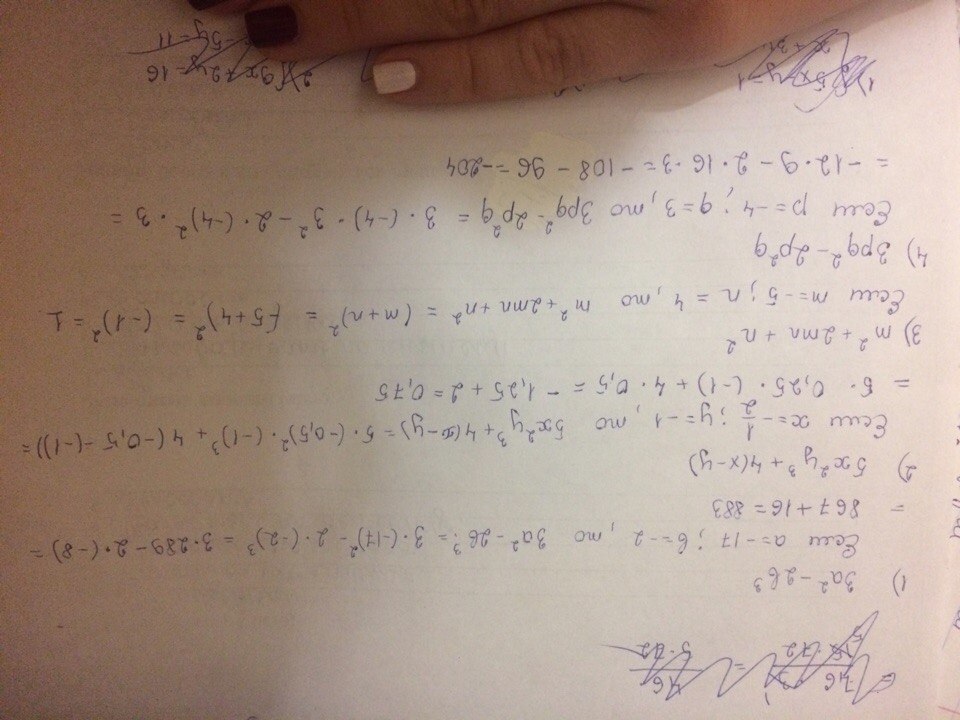 1) 3a² - 2b³
Если a = -17; b = -2, то 3a² - 2b³ = 3·(-17)² - 2·(-2)³ = 3·289 - 2·(-8) =
= 867 + 16 = 883
2) 5x²y³ + 4(x-y)
Если x = -1/2; y = -1, то 5x²y³ + 4(x-y) = 5·(-0,5)²·(-1)³ + 4(-0,5-(-1)) =
= 5·0,25·(-1) + 4·0,5 = -1,25 + 2 = 0,75
3) m² + 2mn + n²
Если m = -5; n = 4, то m² + 2mn + n² = (m+n)² = (-5+4)² = (-1)² = 1
4) 3pq² - 2p²q
Если p = -4; q = 3, то 3pq² - 2p²q = 3·(-4)·3² - 2·(-4)²·3 =
= -12·9 - 2·16·3 = -108 - 96 = -204